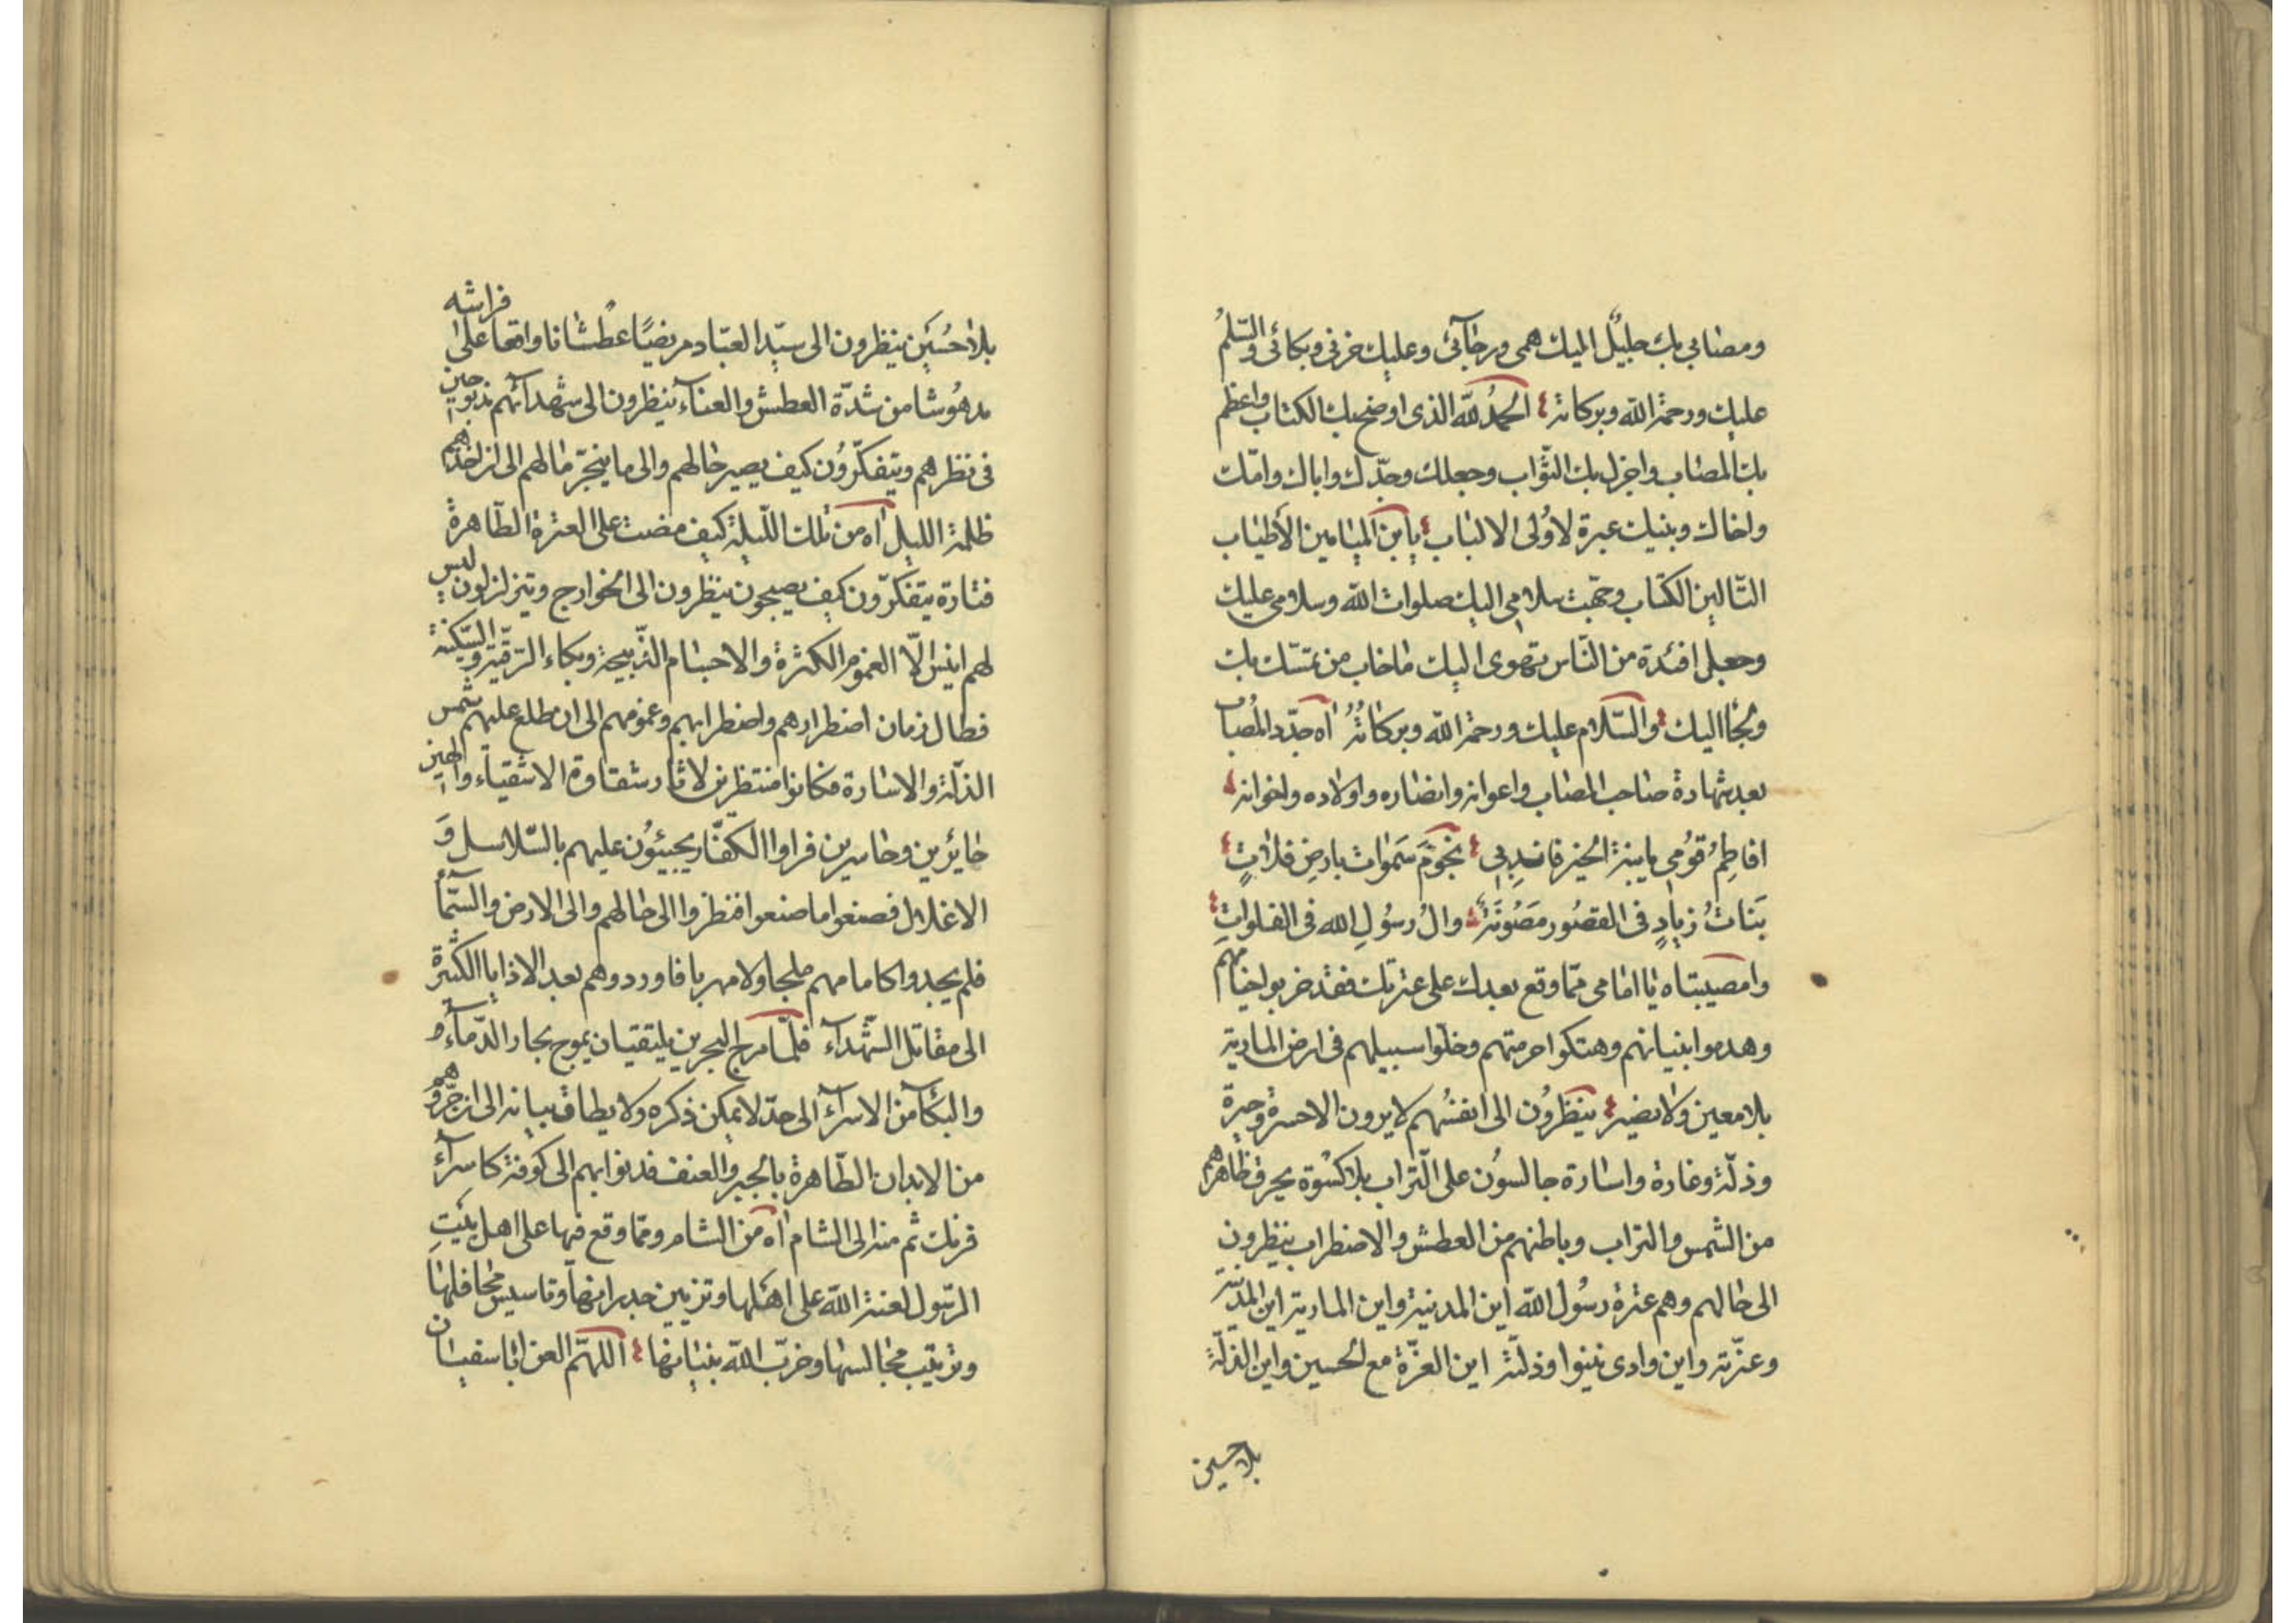 ومصابي بك جليل اليك همى ورجآئى وعليك حزنى وبكائى والسّلم
عليك ورحمة الله وبركاته الحمد لله الذى اوضح بك الكتاب واعظم
بك المصاب واجزل بك الثّواب وجعلك وجدّك واباك وامّك
واخاك وبنيك عبرة لاولى الالباب يابن الميامين الأطياب
التّالين الكتاب وجّهت سلامى اليك صلوات الله وسلامى عليك
وجعل افئدة من النّاس تهوى اليك ماخاب من تمسّك بك
ولجأ اليك والسّلام عليك ورحمة الله وبركاته اه جدّد المصاب
بعد شهادة صاحب المصاب واعوانه وانصاره واولاده واخوانه
افاطِمُ قُومي يابنة الخير فاندبي نجومَ سَموات بارض فلاتٍ
بَناتُ زيادٍ فى القصُور مَصُونَة والُ رسُولِ الله فى الفلواتِ
وامصيبتاه يا امامى ممّا وقع بعدك على عترتك فقد خربوا خيامهم
وهدموا بنيانهم وهتكوا حرمتهم وخلّوا سبيلهم فى ارض المارية
بلا معين ولا نصير ينظرُون الى انفسُهم لا يرون الا حسرة وحيرة
وذلّة وغارة واسارة جالسوُن على التّراب بلا كسْوة يحرق ظاهرهم
من الشمس والتراب وباطنهم من العطش والاضطراب ينظرون
الى حالهم وهم عترة رسُول الله اين المدينة واين المارية اين المدينة
وعزّته واين وادى نينوا وذلّته اين العزّة مع الحسين واين الذلّة
بلا حسين
بلا حُسَين ينظرون الى سيّد العبّاد مريضًا عطْشانا واقعا على فراشه
مدهُوشا من شدّة العطش والعنآء ينظرون الى شهدآئهم مذبوحين
فى نظرهم ويتفكّروُن كيف يصير حالهم والى ما ينجرّ مالهم الى ان اخذهم
ظلمة الليل اه من تلك اللّيلة كيف مضت على العترة الطّاهرة
فتارة يتفكّرون كيف يصبحون ينظرون الى الخوارج ويتزلزلون ليس
لهم انيس الّا الغموم الكثرة والاجسام الذّبيحة وبكاء الرّقيّة والسّكينة
فطال زمان اضطرارهم واضطرابهم وغمومهم الى ان مطلع عليهم شمس
الذلّة والاسارة فكانوا منتظرين لاثار شقاوة الاشقياء والهين
حايرين وخاسرين فراوا الكفّار يجيئوُن عليهم بالسّلاسل وَ
الاغلال فصنعوا ما صنعوا فنظروا الى حالهم والى الارض والسّمآء
فلم يجدوا كامامهم ملجا ولا مهربا فاوردوهم بعد الاذايا الكثيرة
الى مقاتل الشّهدآء فلمّا مرج البحرين يلتقيان يموج بحار الدّمآء و
والبكآء من الاسرآء الى حدّ لا يمكن ذكره ولا يطاق بيانه الى ان جرّوهم
من الابدان الطّاهرة بالجبر والعنف فدنوا بهم الى كوفة كاسرآء
فرنك ثم منه الى الشام اه من الشام وممّا وقع فيها على اهل بَيْتِ
الرّسول لعنة الله على اهلها وتزيين جدرانها وتاسيس محافلها
وترتيب مجالسها وخرّب الله بنيانها اللهمّ العن اباسفيان